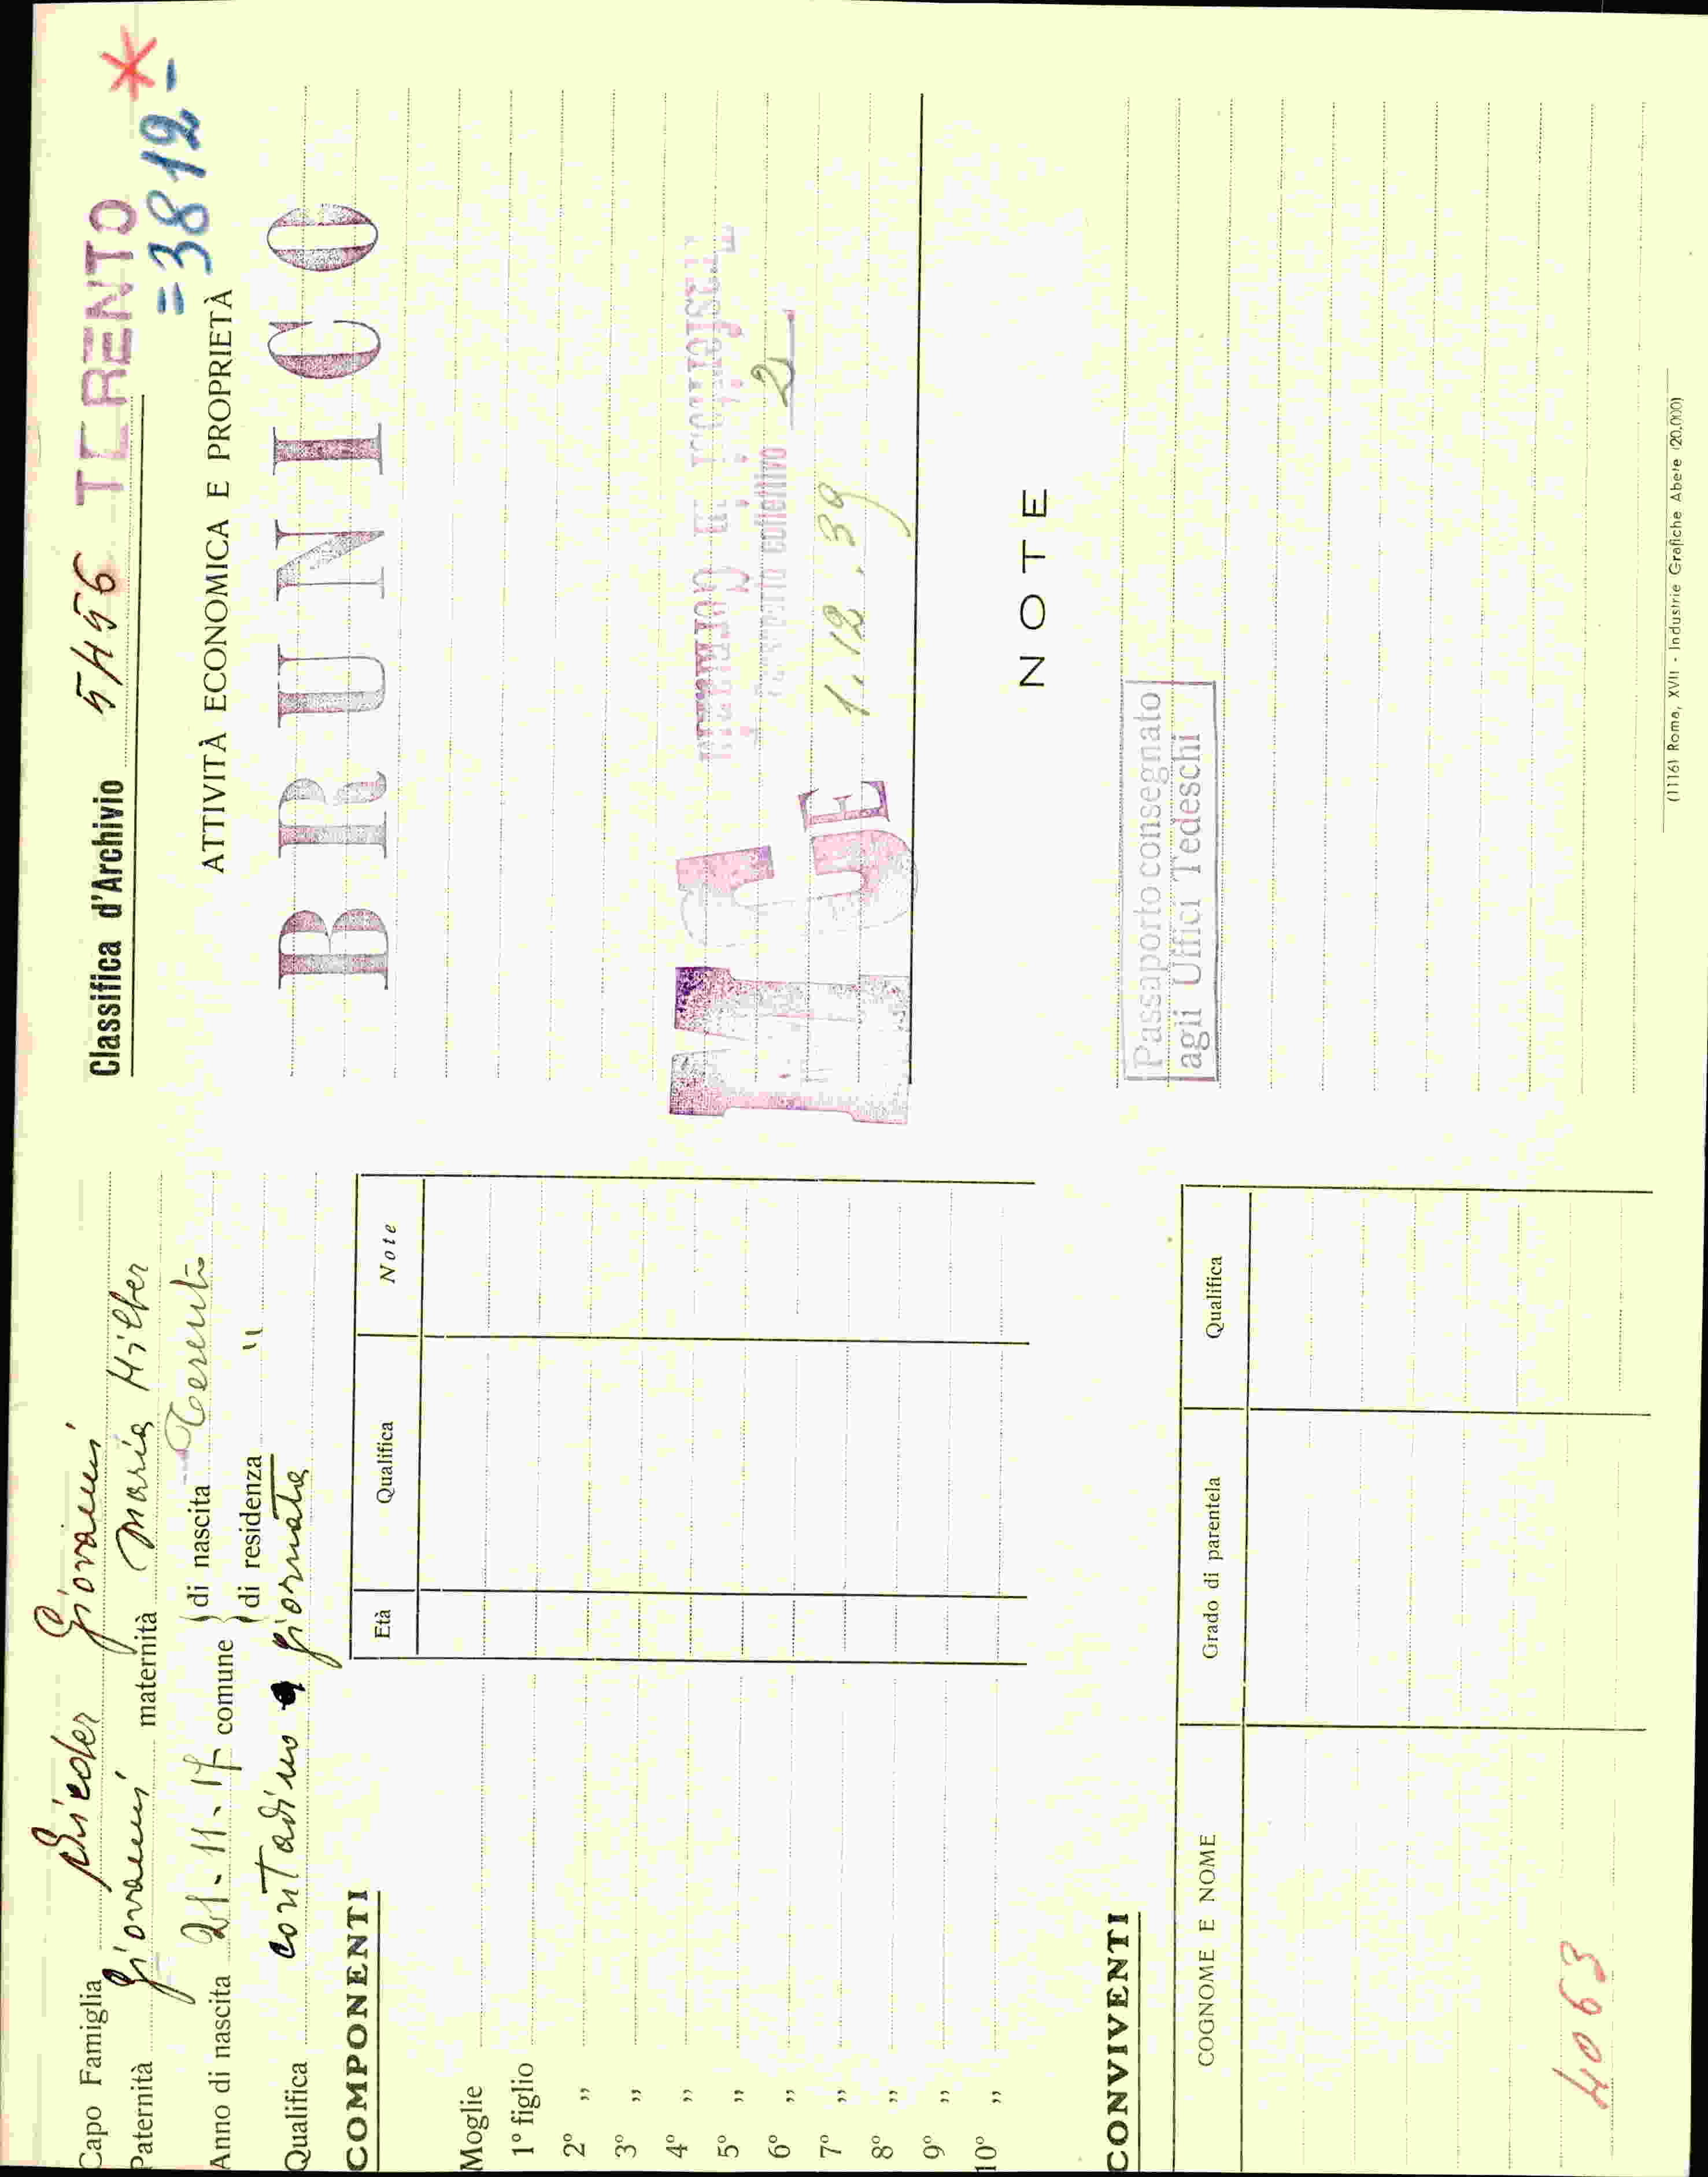 Capo Famiglia Rieder Giovanni
Paternità Giovanni maternità Maria Hilber
Anno di nascita 21-11-17 comune di nascita Terento
di residenza "
Qualifica contadino giornata
COMPONENTI
Età Qualifica Note
Moglie
1º figlio
2º ,,
3º ,,
4º ,,
5º ,,
6º ,,
7º ,,
8º ,,
9º ,,
10º ,,
CONVIVENTI
COGNOME E NOME Grado di parentela Qualifica
4063
Classifica d'Archivio 5456 TERENTO
=3812-
ATTIVITÀ ECONOMICA E PROPRIETÀ
BRUNICO
collettivo 2
1.12.39
NOTE
Passaporto consegnato
agli Uffici Tedeschi
(1116) Roma, XVII - Industrie Grafiche Abete (20.000)